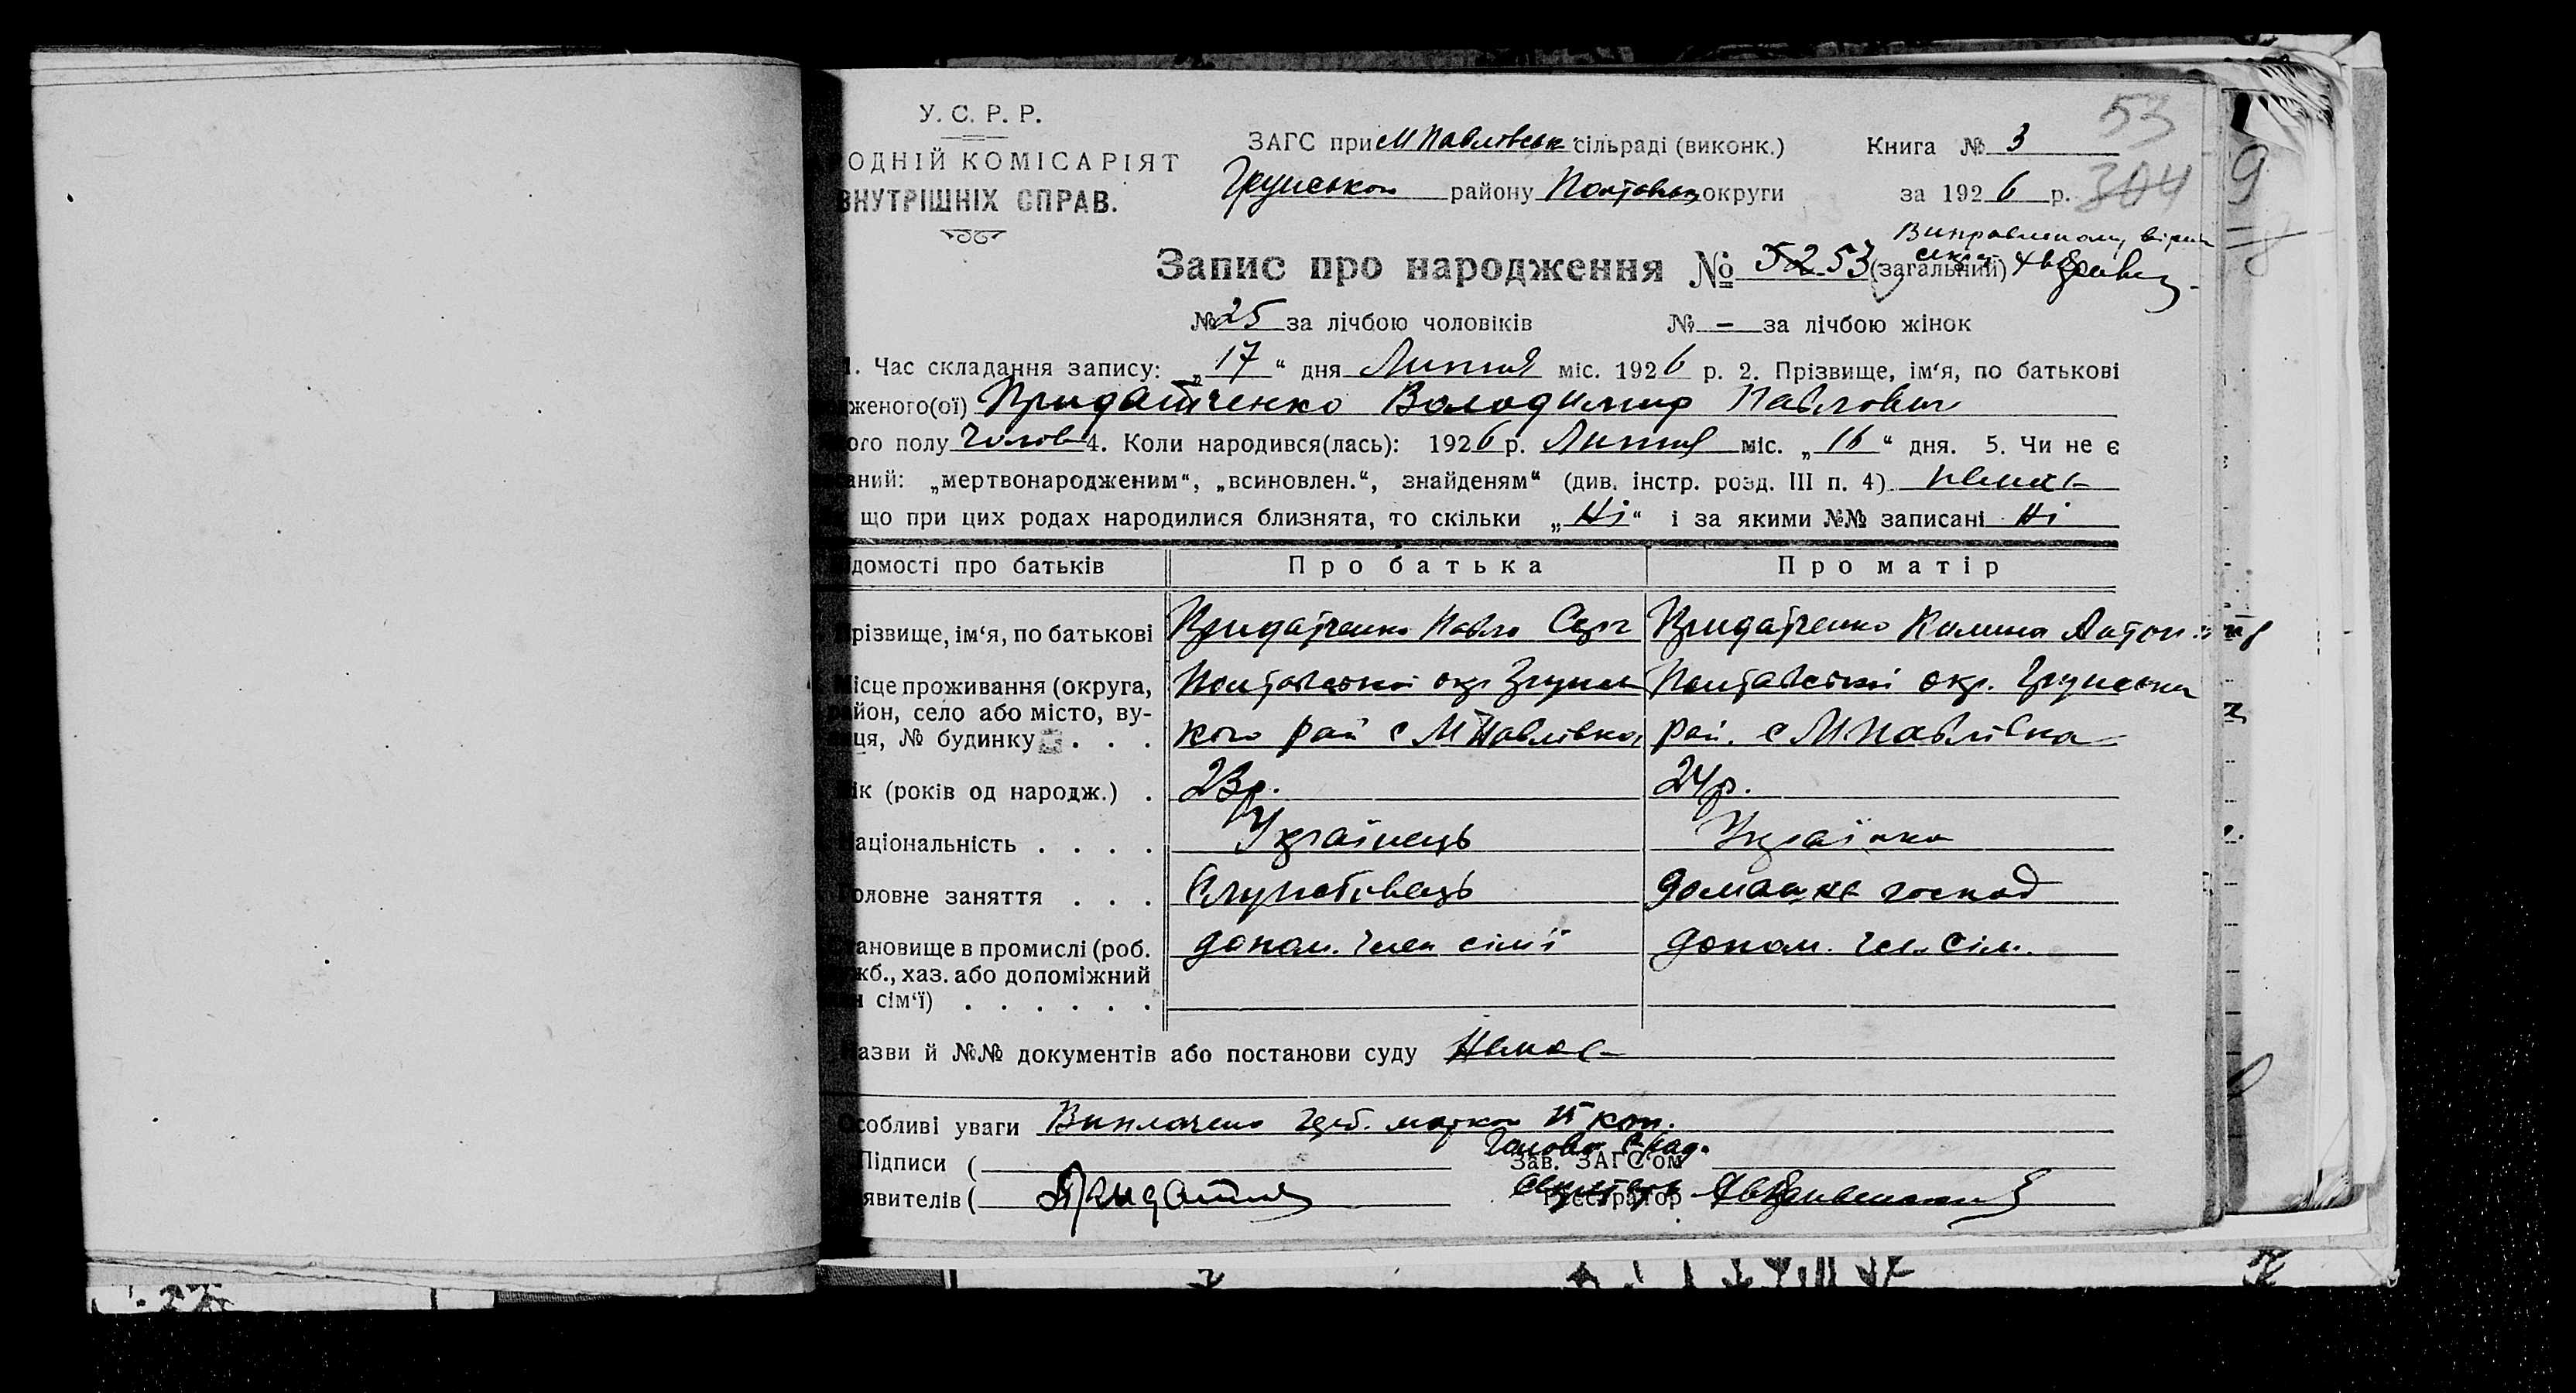 У. С. Р. Р.
ОДНІЙ КОМІСАРІЯТ
ВНУТРІШНІХ СПРАВ.
ЗАГС при М Павлівськ сільраді (виконк.)
Грунського району Полтавськ округи
Книга № 3
за 1926 р.
53
304
Виправленому вірить
Запис про народження № 52 53 (загальний)
№ 25 за лічбою чоловіків № — за лічбою жінок
1. Час складання запису: „17“ дня Липня міс. 1926 р. 2. Прізвище, ім‘я, по батькові
женого(ої) Придатченко Володимир Павлович
ого полу Чолов 4. Коли народився(лась): 1926 р. Липня міс. „16“ дня. 5. Чи не є
аний: „мертвонародженим“, „всиновлен.“, знайденям“ (див. інстр. розд. III п. 4) немає
що при цих родах народилися близнята, то скільки „Ні“ і за якими №№ записані Ні
ідомості про батьків Про батька Про матір
різвище, ім‘я, по батькові Придатченко Павло Серг Придатченко Килина Антон
ісце проживання (округа, Полтавської окр Грунсь Полтавської окр. Грунська
айон, село або місто, ву- кого рай с М Павлівка рай. с М. Павлівка
ця, № будинку . . .
ік (років од народж.) . 23р. 24р.
аціональність . . . . Українець Українка
оловне заняття . . . домашнє господ
тановище в промислі (роб. допом. член сім'ї допом. чл. сім.
жб., хаз. або допоміжний
н сім‘ї) . . . . . .
азви й №№ документів або постанови суду Немає
собливі уваги Виплачено герб. марков 15 коп.
Підписи ( Голова С/рад.
Зав. ЗАГС‘ом
явителів ( Секретарь
Реєстратор